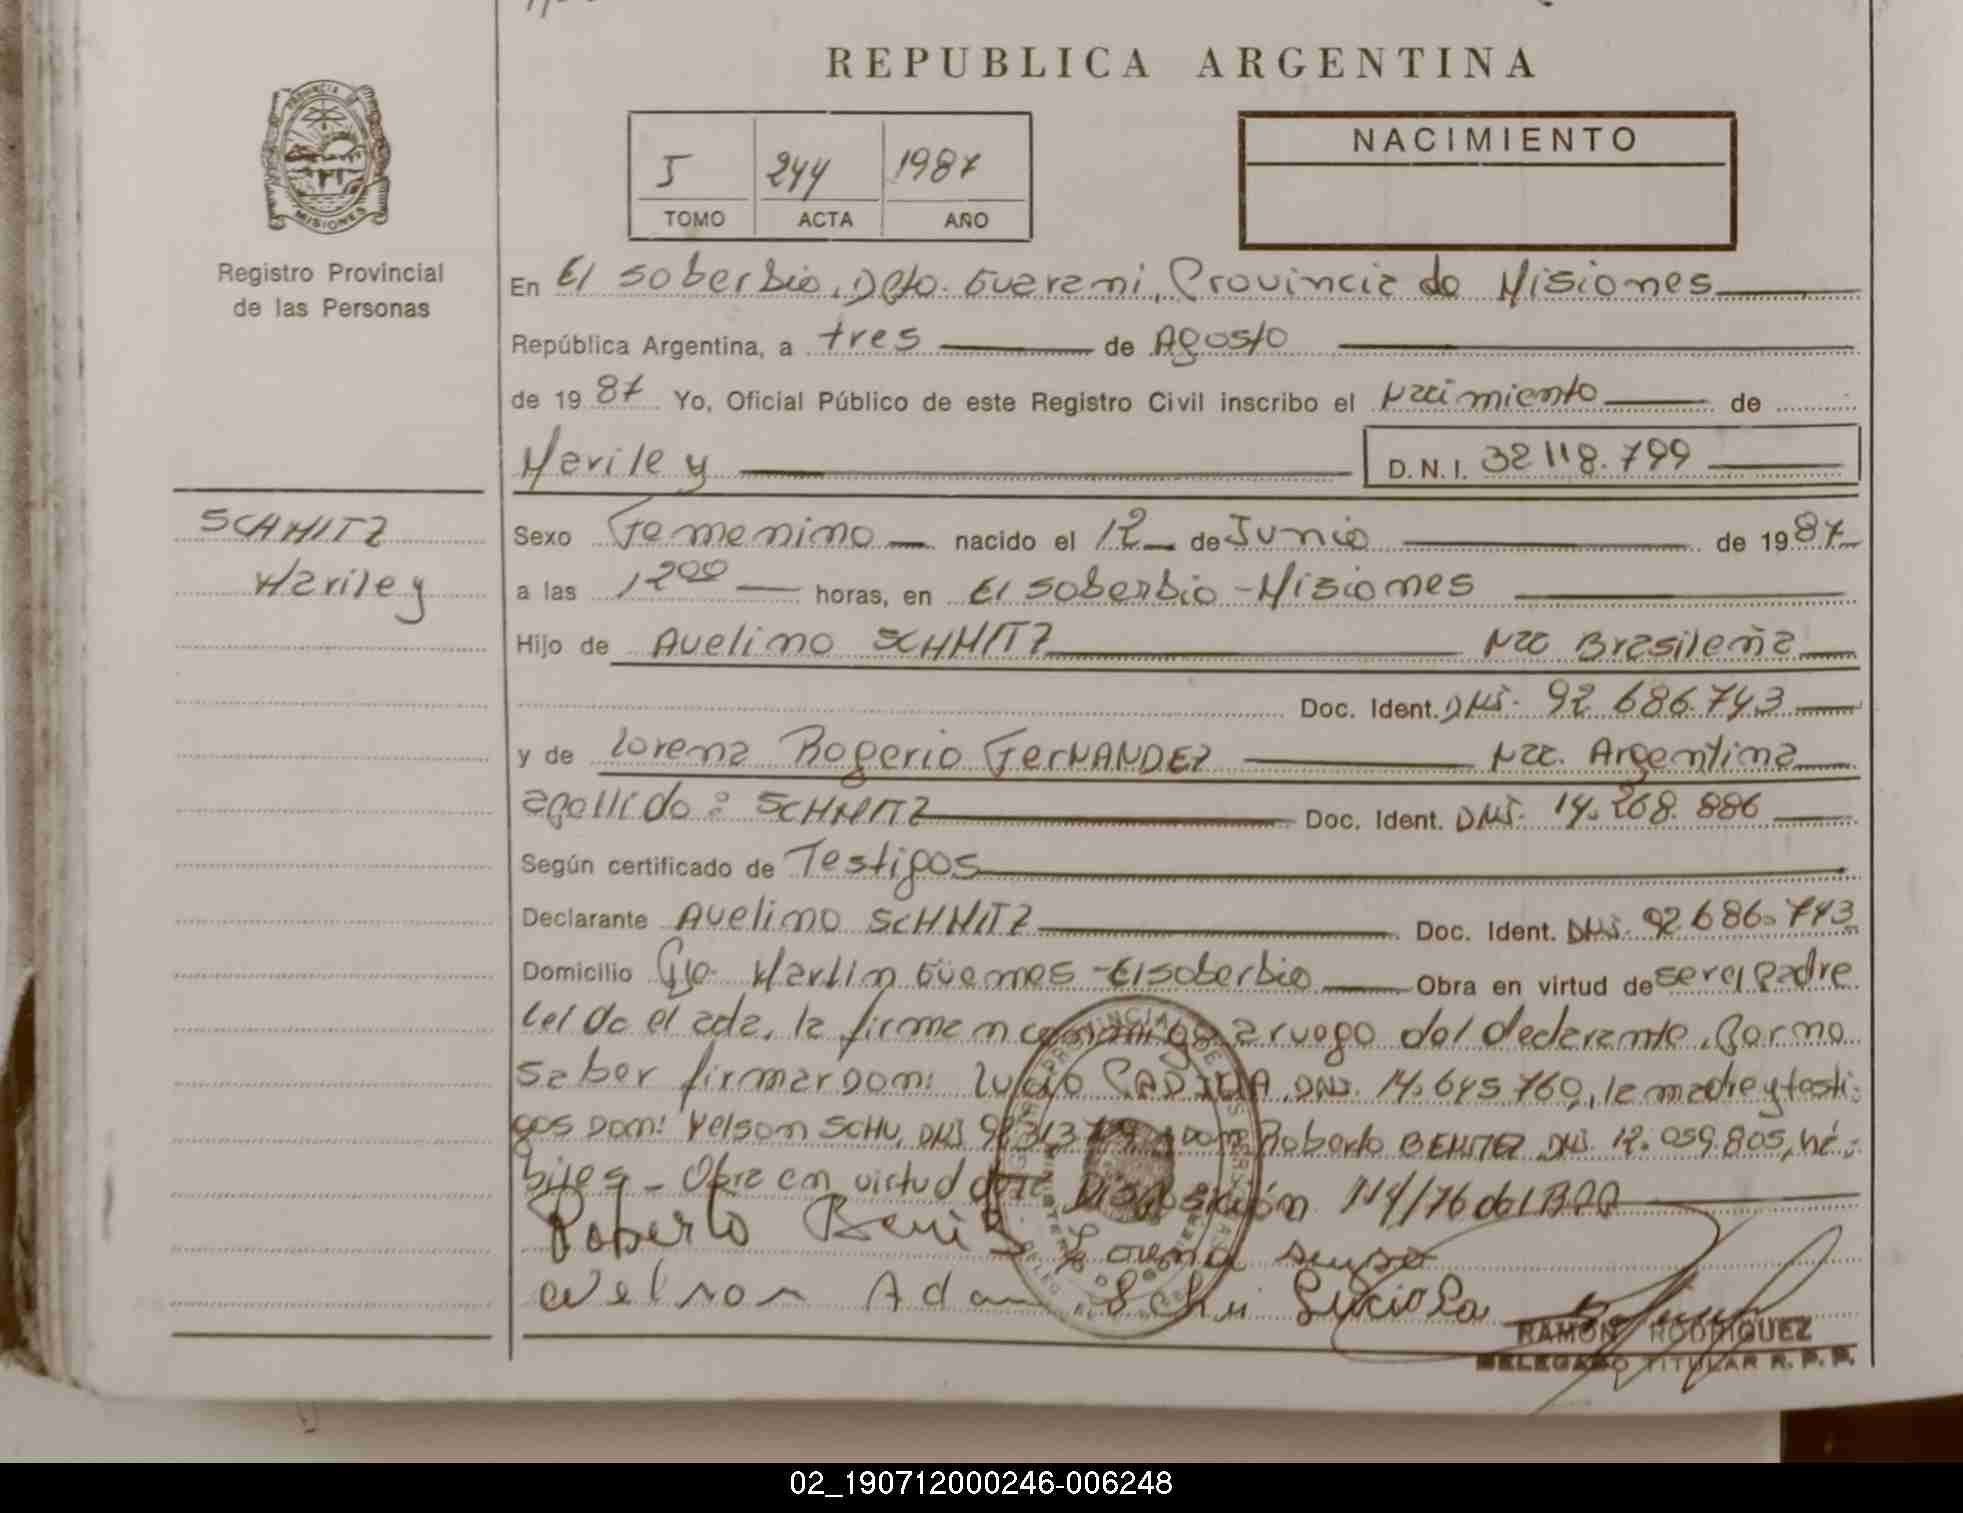 REPUBLICA ARGENTINA
PROVINCIA DE
MISIONES
Registro Provincial
de las Personas
I 244 1987
TOMO ACTA AÑO
NACIMIENTO
En El Soberbio, Dpto. Guarani, Provincia de Misiones
República Argentina, a tres de Agosto
de 1987 Yo, Oficial Público de este Registro Civil inscribo el Nacimiento de
Marile y
D.N.I. 32 118.799
SCHMITZ
Mariley
Sexo Femenino nacido el 12 de Junio de 1987
a las 1200 horas, en El Soberbio - Misiones
Hijo de Avelino SCHMITZ Nac Brasileña
Doc. Ident. DNI. 92 686.743
y de Lorena Rogerio FerNANDEZ Nac. Argentina
apellido: SCHMITZ Doc. Ident. DNI. 14.268.886
Según certificado de Testigos
Declarante Avelino SCHMITZ Doc. Ident. DNI. 92.686.743
Domicilio Martin Güemes - El Soberbio Obra en virtud de ser el padre
Leida el acta, la firman conmigo a ruego del declarante, por no
saber firmar Don: Lucio PADILLA, DNI. 14.645.760, la madre y testi-
gos Don: Nelson SCHU, DNI Don Roberto BENITEZ DNI. 12.059.805, há-
biles - Obra en virtud de la Disposición 114/76 del
Roberto Beni
Lorena
Nelson Adan Schu Lucio Pa
RAMON RODRIGUEZ
DELEGADO TITULAR R. P. P.
02_190712000246-006248